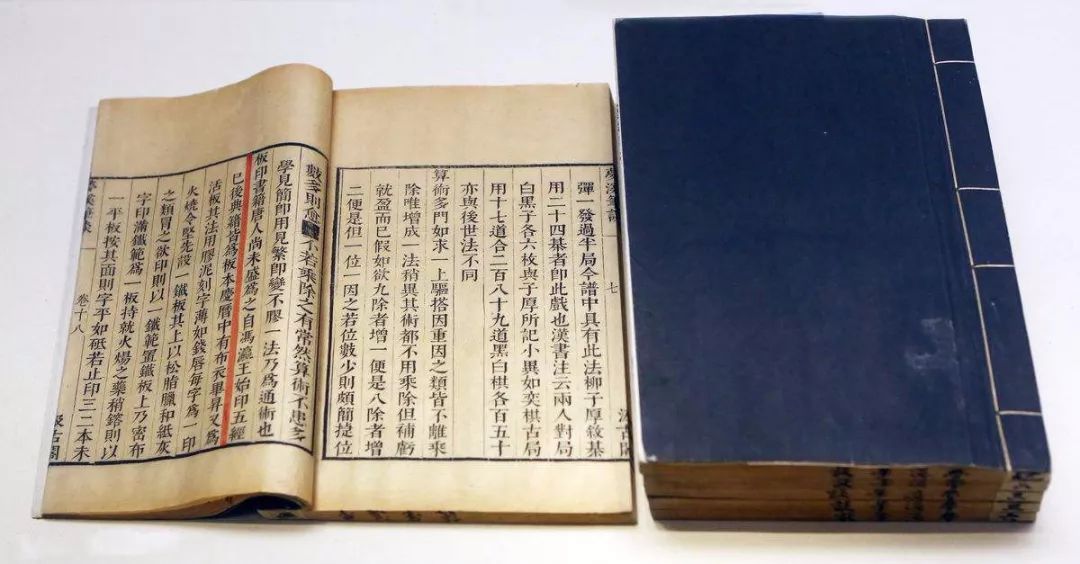 夢溪筆談
七
彈一發過半局今譜中具有此法柳子厚敘棊
用二十四棊者卽此戲也漢書注云兩人對局
白黑子各六枚與子厚所記小異如奕棋古局
用十七道合二百八十九道黑白棋各百五十
亦與後世法不同
算術多門如求一上驅搭因重因之類皆不離乘
除唯增成一法稍異其術都不用乘除但補虧
就盈而已假如欲九除者增一便是八除者增
二便是但一位一因之若位數少則頗簡捷位
數多則愈繁不若乘除之有常然算術不患多
學見簡卽用見繁卽變不膠一法乃爲通術也
板印書籍唐人尚未盛爲之自馮瀛王始印五經
已後典籍皆爲板本慶曆中有布衣畢昇又爲
活板其法用膠泥刻字薄如錢唇每字爲一印
火燒令堅先設一鐵板其上以松脂臘和紙灰
之類冒之欲印則以一鐵範置鐵板上乃密布
字印滿鐵範爲一板持就火煬之藥稍鎔則以
一平板按其面則字平如砥若止印三二本未
夢溪筆談
卷十八
汲古閣